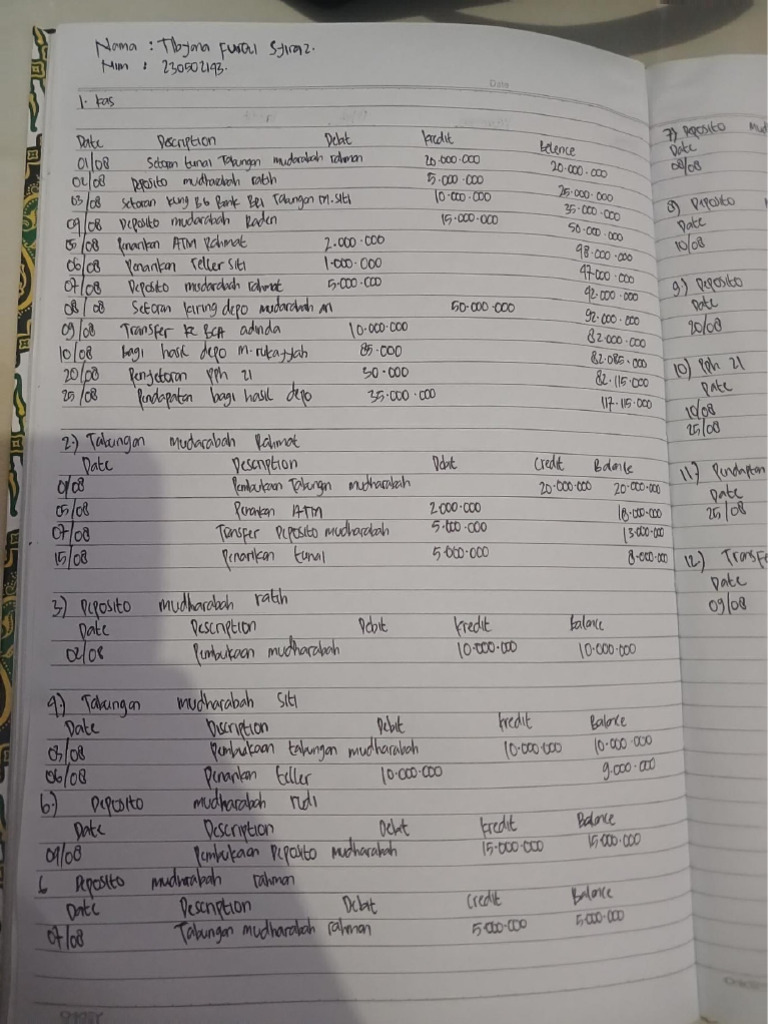 Nama :
Nim : 230502193.
Date
1. kas
Date Description Debit kredit Belence
01/08 Setoran tunai Tabungan mudarabah rahman 20.000.000 20.000.000
02/08 Deposito mudharabah ratih 5.000.000 25.000.000
03/08 Setoran Bank Tabungan m. Siti 10.000.000 35.000.000
04/08 Deposito mudarabah Raden 15.000.000 50.000.000
05/08 Penarikan ATM Rahmat 2.000.000 48.000.000
06/08 Penarikan Teller Siti 1.000.000 47.000.000
07/08 Deposito mudarabah rahmat 5.000.000 92.000.000
08/08 Setoran kliring depo mudarabah 50.000.000 92.000.000
09/08 Transfer ke BCA adinda 10.000.000 82.000.000
10/08 bagi hasil depo m. rukayyah 85.000 82.085.000
20/08 Penyetoran pph 21 30.000 82.115.000
25/08 Pendapatan bagi hasil depo 35.000.000 117.115.000
2.) Tabungan mudarabah Rahmat
Date Description Debit Credit Balance
01/08 Pembukaan Tabungan mudharabah 20.000.000 20.000.000
05/08 Penarikan ATM 2.000.000 18.000.000
07/08 Transfer Deposito mudharabah 5.000.000 13.000.000
15/08 Penarikan tunai 5.000.000 8.000.000
3) Deposito mudharabah ratih
Date Description Debit kredit Balance
02/08 Pembukaan mudharabah 10.000.000 10.000.000
4.) Tabungan mudharabah Siti
Date Discription Debit kredit Balance
03/08 Pembukaan tabungan mudharabah 10.000.000 10.000.000
06/08 Penarikan teller 10.000.000 9.000.000
6.) Deposito mudharabah rudi
Date Description Debit kredit Balance
04/08 Pembukaan Deposito mudharabah 15.000.000 15.000.000
6 Deposito mudharabah rahman
Date Description Debit Credit Balance
07/08 Tabungan mudharabah rahman 5.000.000 5.000.000
7) Deposito
Date
08/08
8) Deposito
Date
10/08
9) Deposito
Date
20/08
10) Pph 21
Date
10/08
25/08
11)
Date
25/08
12.) Transfe
Date
09/08